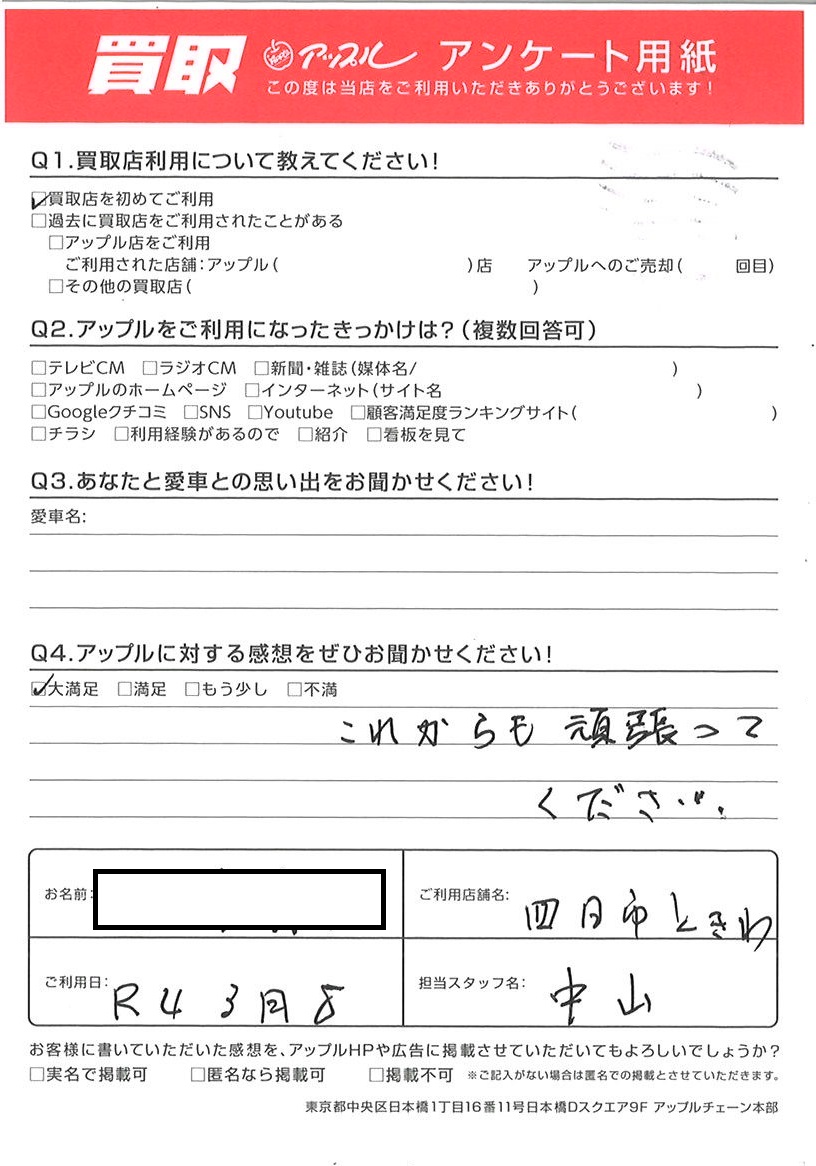 買取 アップル アンケート用紙
この度は当店をご利用いただきありがとうございます!
Q1.買取店利用について教えてください!
☑買取店を初めてご利用
□過去に買取店をご利用されたことがある
□アップル店をご利用
ご利用された店舗:アップル( )店 アップルへのご売却( 回目)
□その他の買取店( )
Q2.アップルをご利用になったきっかけは?(複数回答可)
□テレビCM □ラジオCM □新聞・雑誌(媒体名/ )
□アップルのホームページ □インターネット(サイト名 )
□Googleクチコミ □SNS □Youtube □顧客満足度ランキングサイト( )
□チラシ □利用経験があるので □紹介 □看板を見て
Q3.あなたと愛車との思い出をお聞かせください!
愛車名:
Q4.アップルに対する感想をぜひお聞かせください!
☑大満足 □満足 □もう少し □不満
これからも頑張って
ください.
お名前:
ご利用店舗名: 四日市ときわ
ご利用日: R4 3月8
担当スタッフ名: 中山
お客様に書いていただいた感想を、アップルHPや広告に掲載させていただいてもよろしいでしょうか?
□実名で掲載可 □匿名なら掲載可 □掲載不可 ※ご記入がない場合は匿名での掲載とさせていただきます。
東京都中央区日本橋1丁目16番11号日本橋Dスクエア9F アップルチェーン本部